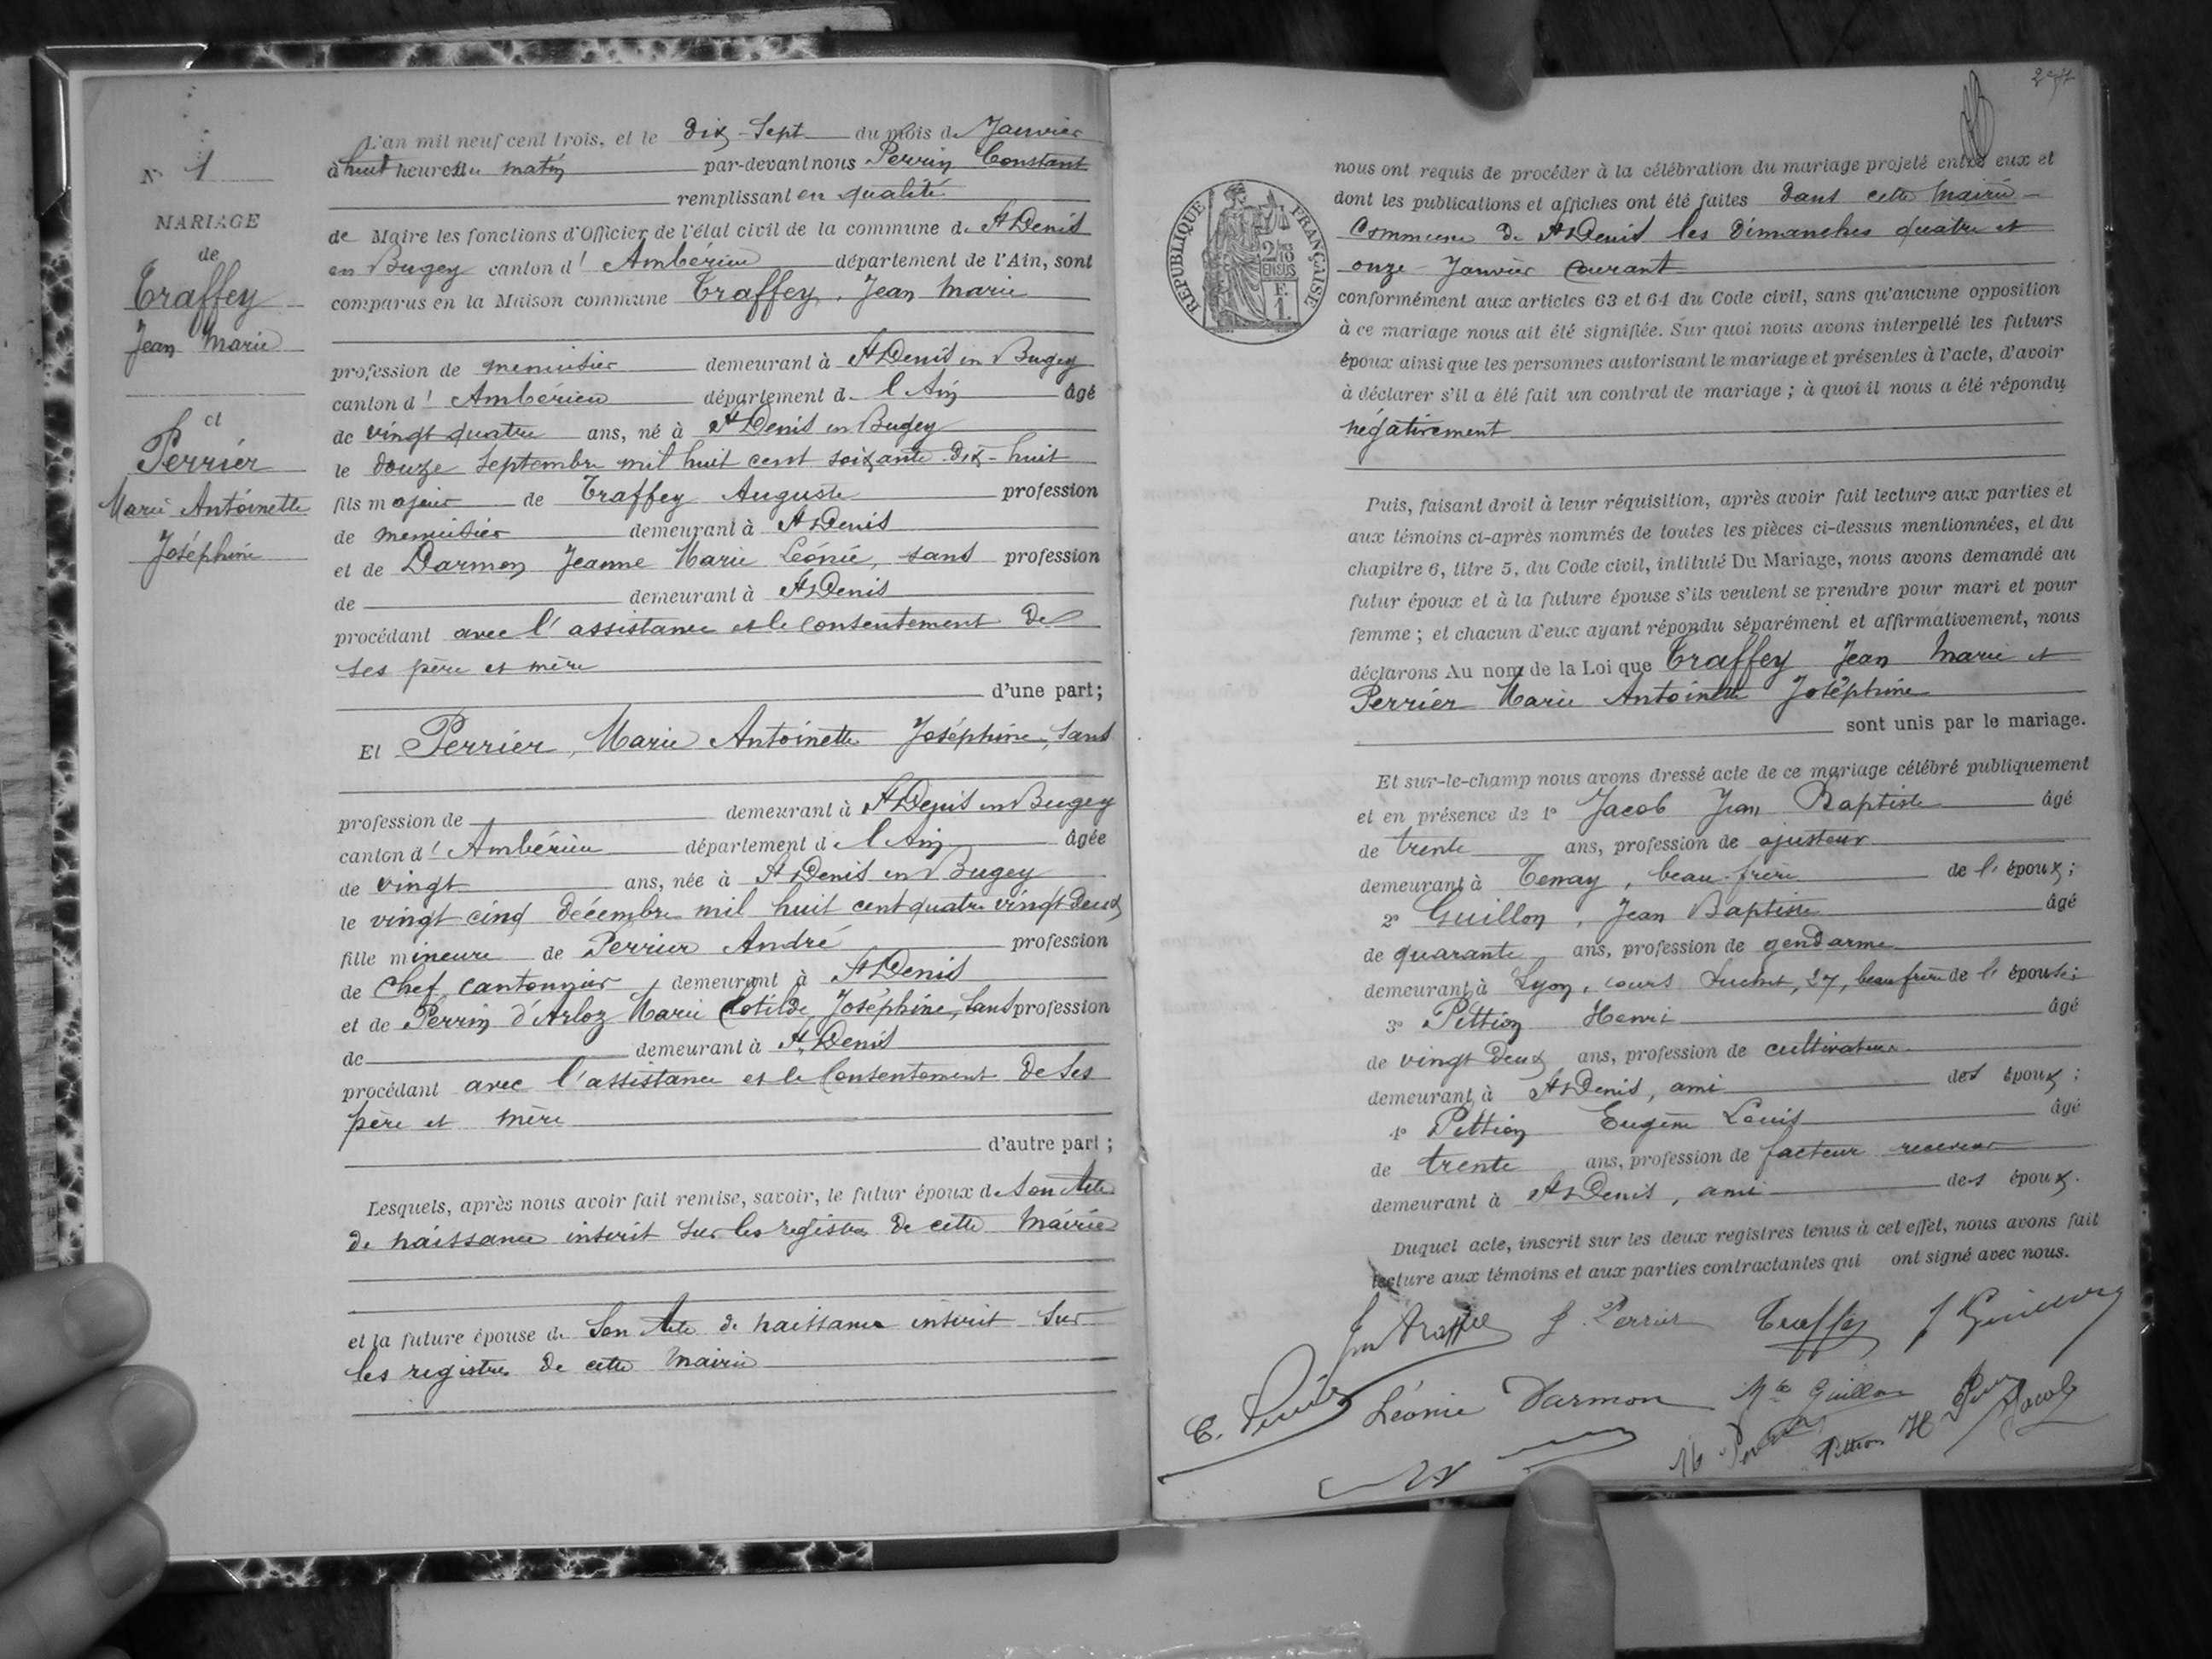 N° 1
MARIAGE
de
Traffey
Jean Marie
et
Perrier
Marie Antoinette
Joséphine
L'an mil neuf cent trois, et le dix-sept du mois de Janvier
à huit heures du matin par-devant nous Perrin Constant
remplissant en qualité
de Maire les fonctions d'Officier de l'état civil de la commune de St Denis
en Bugey canton d' Ambérieu département de l'Ain, sont
comparus en la Maison commune Traffey, Jean Marie
profession de menuisier demeurant à St Denis en Bugey
canton d' Ambérieu département de l'Ain âgé
de vingt quatre ans, né à St Denis en Bugey
le douze septembre mil huit cent soixante dix-huit
fils majeur de Traffey Auguste profession
de menuisier demeurant à St Denis
et de Darmon Jeanne Marie Léonie, sans profession
de demeurant à St Denis
procédant avec l'assistance et le consentement de
ses père et mère
d'une part;
Et Perrier, Marie Antoinette Joséphine, sans
profession de demeurant à St Denis en Bugey
canton d' Ambérieu département de l'Ain âgée
de vingt ans, née à St Denis en Bugey
le vingt cinq décembre mil huit cent quatre vingt deux
fille mineure de Perrier André profession
de Chef cantonnier demeurant à St Denis
et de Perrin d'Arloz Marie Clotilde, Joséphine, sans profession
de demeurant à St Denis
procédant avec l'assistance et le consentement de ses
père et mère
d'autre part;
Lesquels, après nous avoir fait remise, savoir, le futur époux de son Acte
de naissance inscrit sur les registres de cette Mairie
et la future épouse de son Acte de naissance inscrit sur
les registres de cette Mairie
RÉPUBLIQUE FRANÇAISE
EN SUS
F.
1
nous ont requis de procéder à la célébration du mariage projeté entre eux et
dont les publications et affiches ont été faites dans cette Mairie
Commune de St Denis les dimanches quatre et
onze Janvier courant
conformément aux articles 63 et 64 du Code civil, sans qu'aucune opposition
à ce mariage nous ait été signifiée. Sur quoi nous avons interpellé les futurs
époux ainsi que les personnes autorisant le mariage et présentes à l'acte, d'avoir
à déclarer s'il a été fait un contrat de mariage; à quoi il nous a été répondu
négativement
Puis, faisant droit à leur réquisition, après avoir fait lecture aux parties et
aux témoins ci-après nommés de toutes les pièces ci-dessus mentionnées, et du
chapitre 6, titre 5, du Code civil, intitulé Du Mariage, nous avons demandé au
futur époux et à la future épouse s'ils veulent se prendre pour mari et pour
femme; et chacun d'eux ayant répondu séparément et affirmativement, nous
déclarons Au nom de la Loi que Traffey Jean Marie et
Perrier Marie Antoinette Joséphine
sont unis par le mariage.
Et sur-le-champ nous avons dressé acte de ce mariage célébré publiquement
et en présence de 1° Jacob Jean Baptiste âgé
de trente ans, profession de ajusteur
demeurant à Tenay, beau-frère de l'époux;
2° Guillon, Jean Baptiste âgé
de quarante ans, profession de gendarme
demeurant à Lyon, cours Suchet, 27, beau frère de l'épouse;
3° Pittion Henri âgé
de vingt deux ans, profession de cultivateur
demeurant à St Denis, ami des époux;
4° Pittion Eugène Louis âgé
de trente ans, profession de facteur receveur
demeurant à St Denis, ami des époux.
Duquel acte, inscrit sur les deux registres tenus à cet effet, nous avons fait
lecture aux témoins et aux parties contractantes qui ont signé avec nous.
J. Perrier Traffey
Léonie Darmon Guillon Jacob
Pittion H